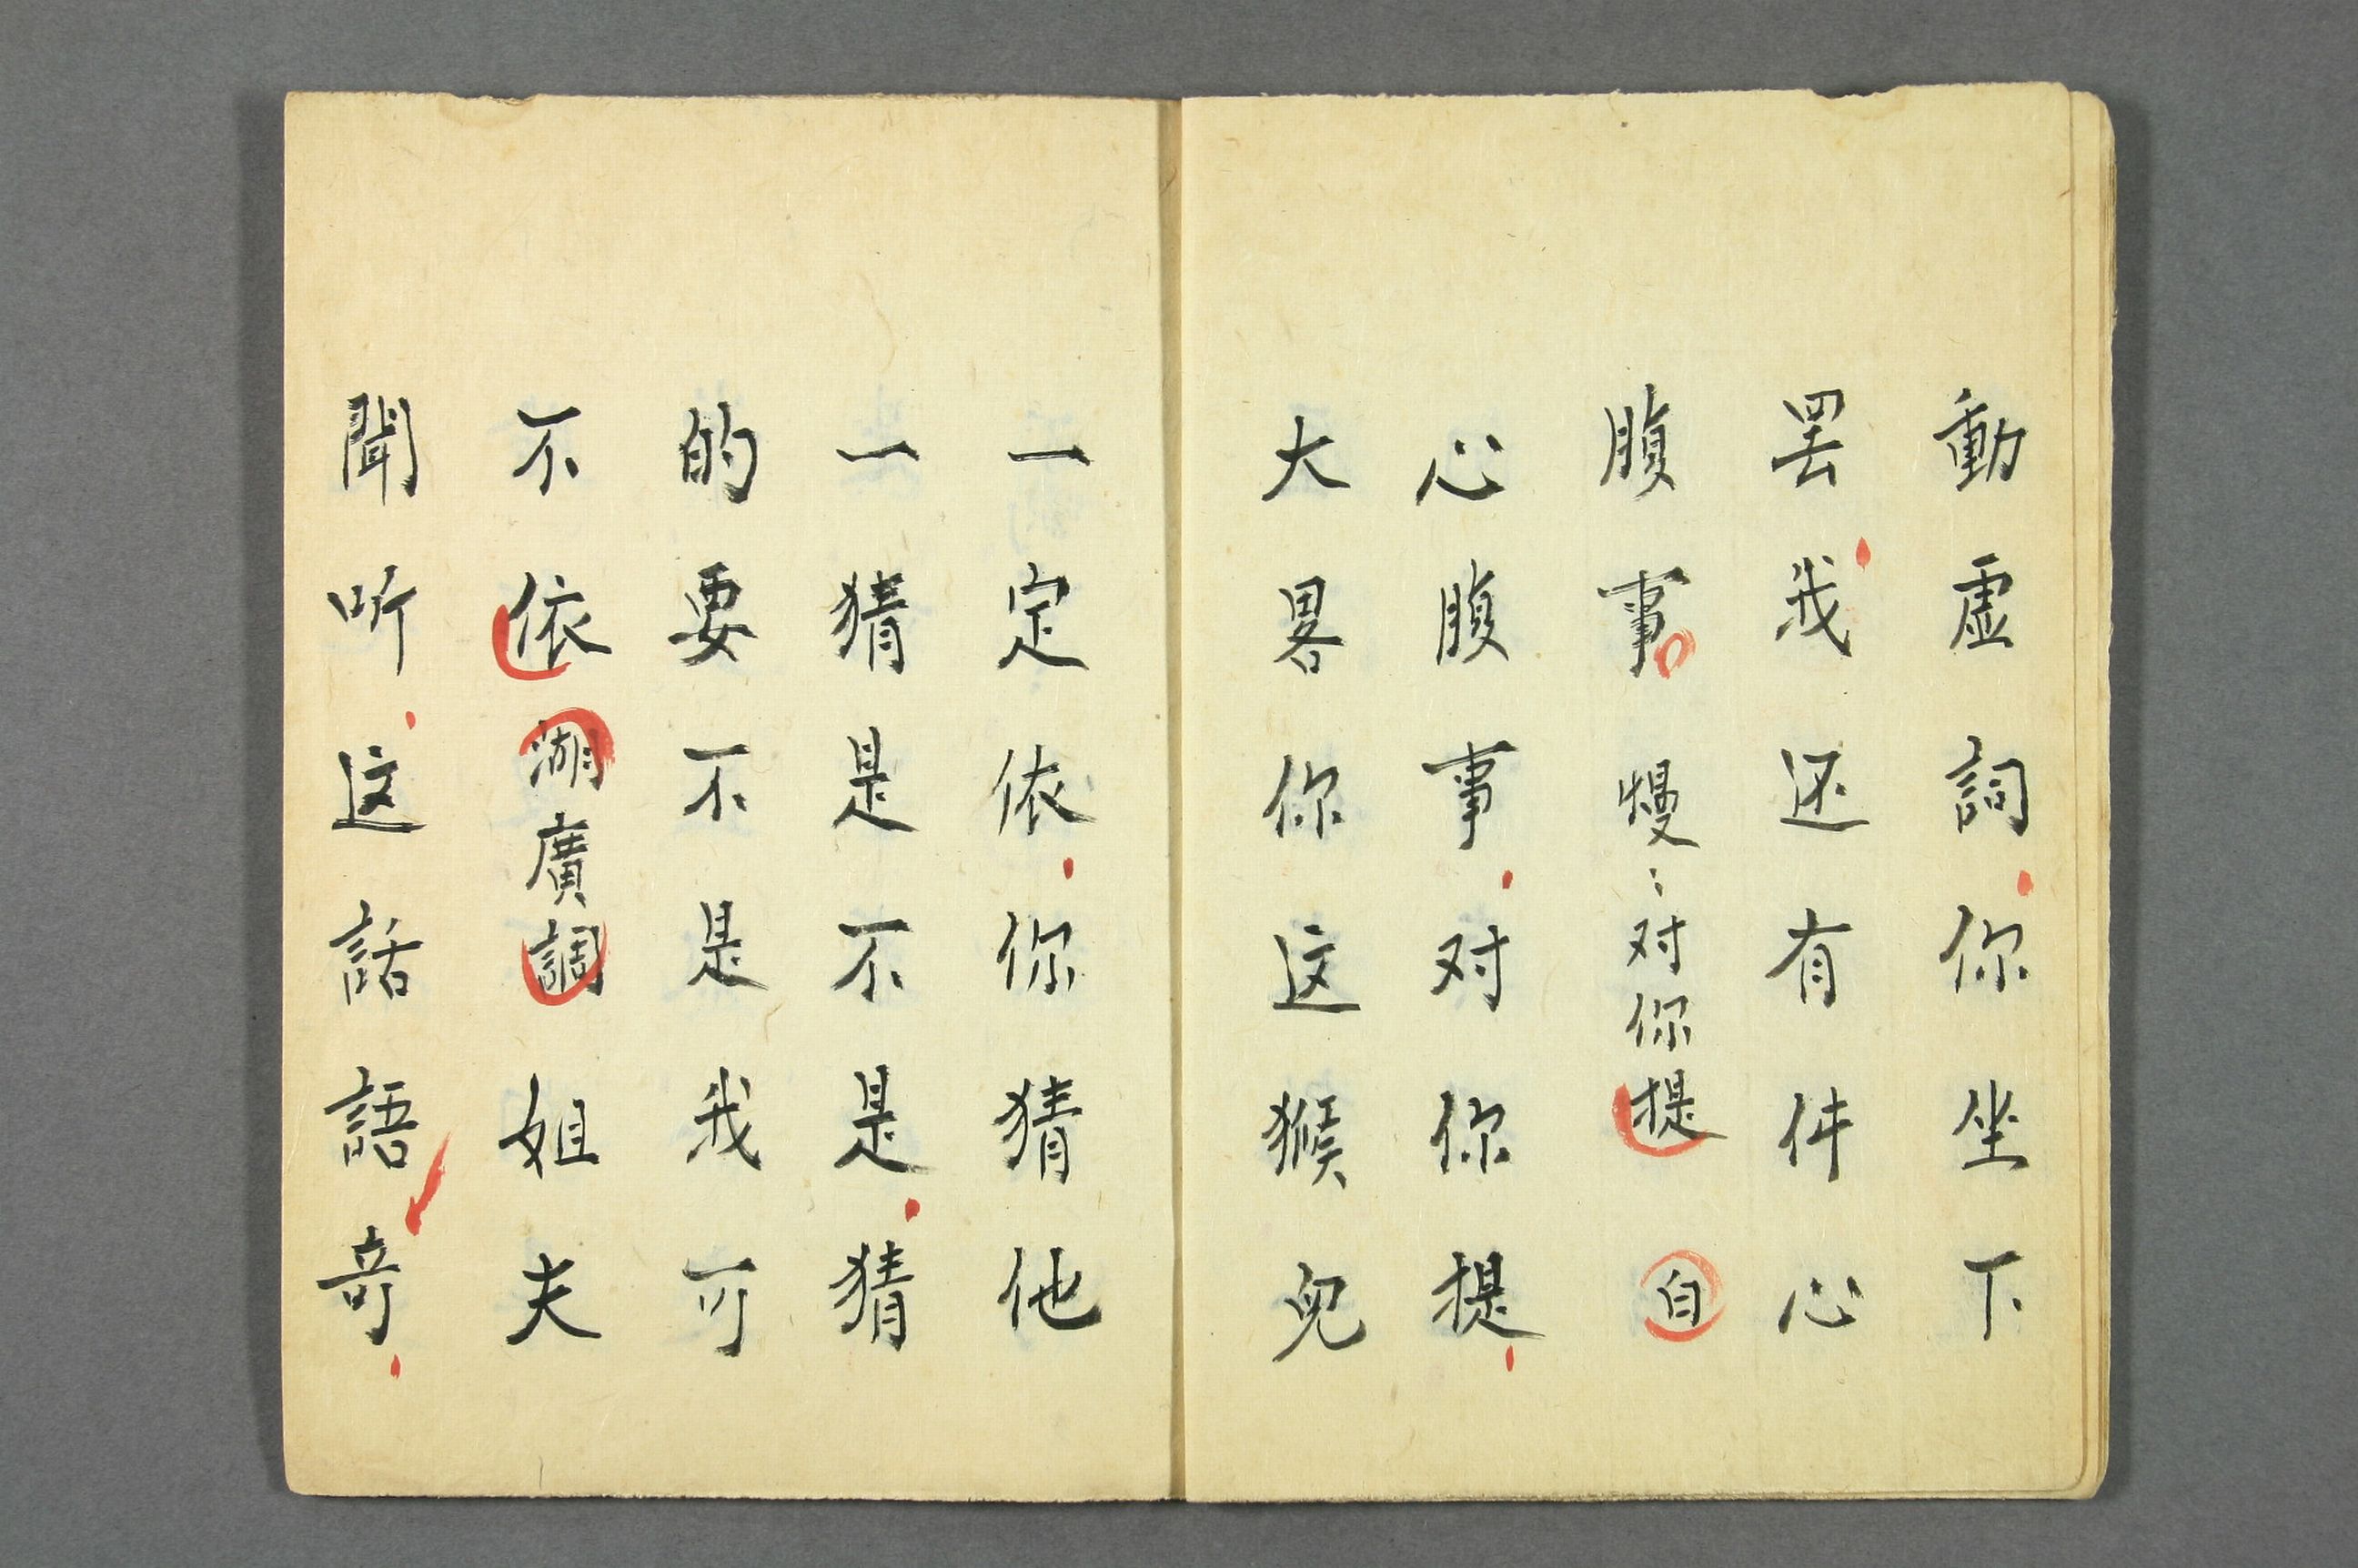 動虛詞你坐下
罢我还有件心
腹事慢〻对你提自
心腹事对你提
大畧你这猴兒
一定依你猜他
一猜是不是猜
的要不是我可
不依湖廣調姐夫
聞听这話語奇